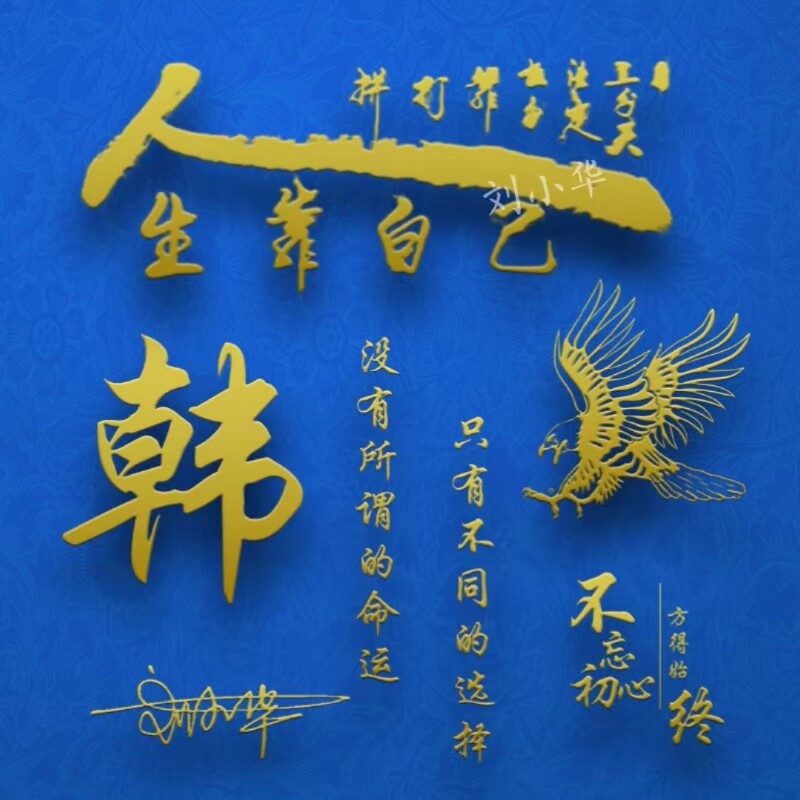 三分天
注定
靠
打
拼
人生靠自己
刘小华
韩
没有所谓的命运
只有不同的选择
不忘初心
方得始终
刘小华